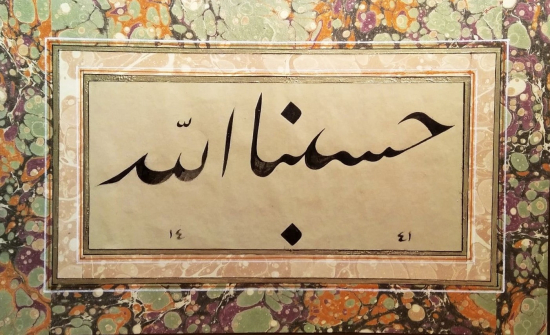 حسبنا الله
١٤ ٤١